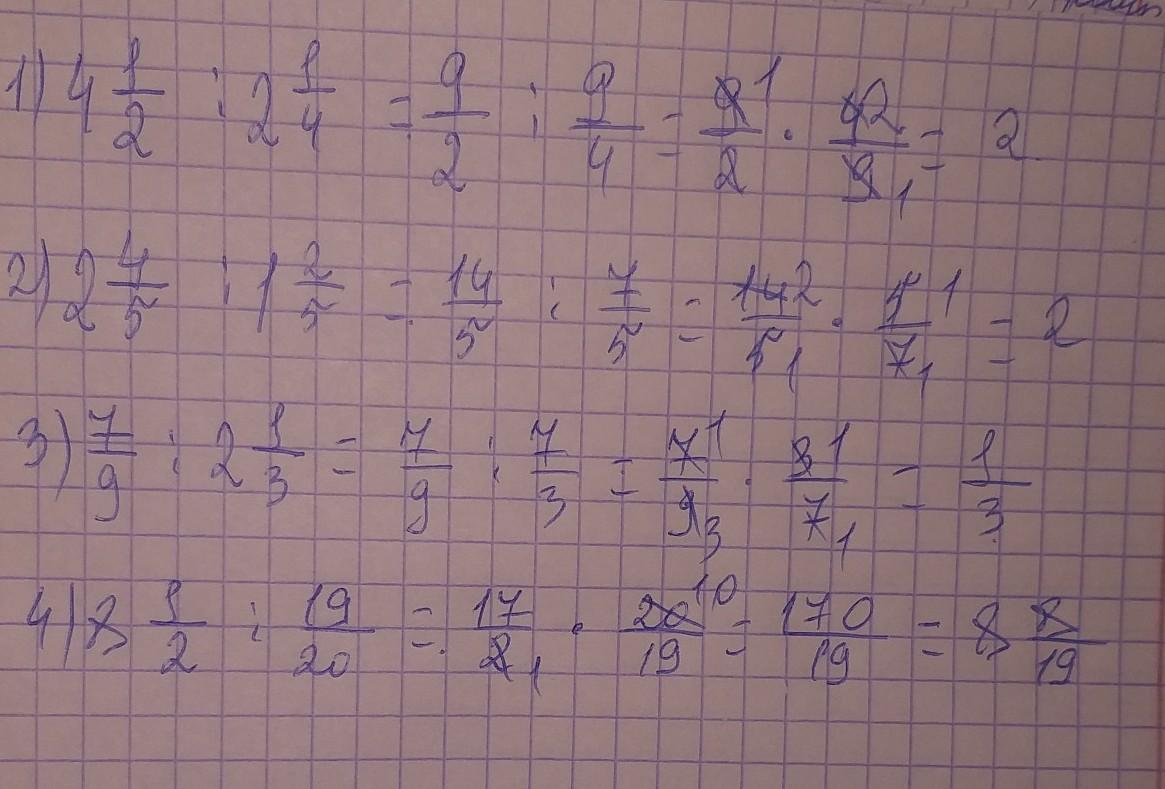 1) 4 1/2 : 2 1/4 = 9/2 : 9/4 = 9 1/2 · 4 2/9 1 = 2
2) 2 4/5 : 1 2/5 = 14/5 : 7/5 = 14 2/5 1 · 5 1/7 1 = 2
3) 7/9 : 2 1/3 = 7/9 : 7/3 = 7 1/9 3 · 3 1/7 1 = 1/3
4) 8 1/2 : 19/20 = 17/2 1 · 20 10/19 = 170/19 = 8 8/19